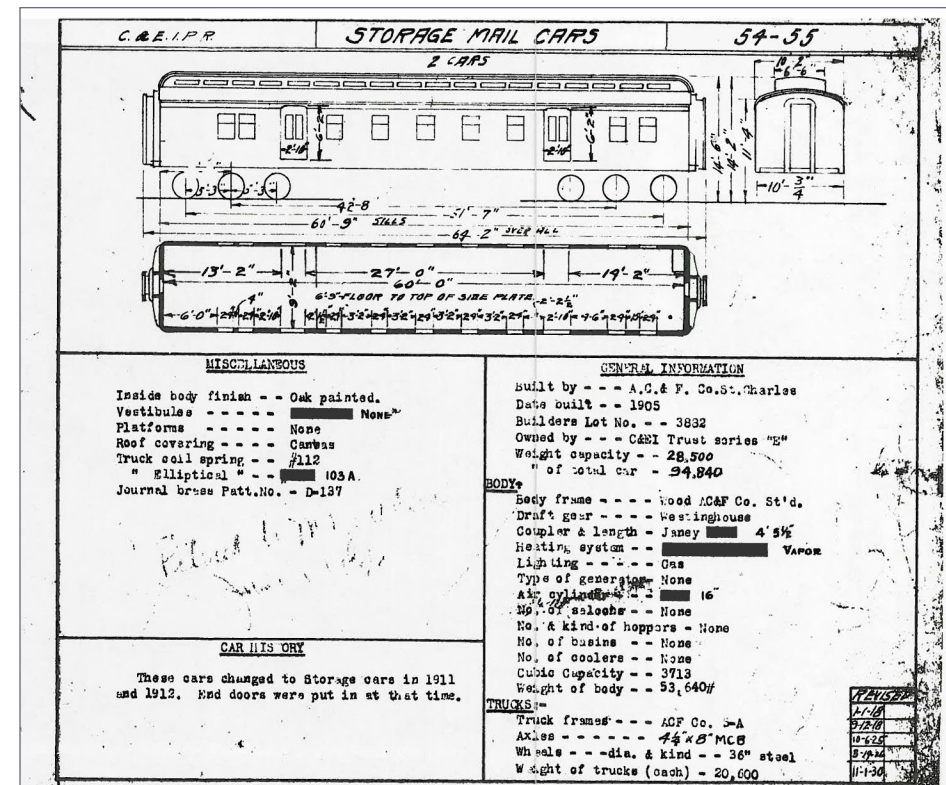 C. & E. I. P. R.
STORAGE MAIL CARS
54-55
2 CARS
10'-2"
6'-6"
6'-2"
6'-2"
2'-10"
2'-10"
14'-6"
14'-2"
11'-4"
10'-3/4"
5'-3
5'-3
42'-8
51'-7"
60'-9" SILLS
64'-2" OVER ALL
13'-2"
27'-0"
14'-2"
60'-0"
9'-2"
6'-9" FLOOR TO TOP OF SIDE PLATE
2'-2½"
4"
6'-0"
MISCELLANEOUS
Inside body finish - - Oak painted.
Vestibules - - - - - NONE"
Platforms - - - - - None
Roof covering - - - - Canvas
Truck coil spring - - #112
" Elliptical " - - 103A.
Journal brass Patt.No. - D-137
CAR HISTORY
These cars changed to Storage cars in 1911
and 1912. End doors were put in at that time.
GENERAL INFORMATION
Built by - - - A.C.& F. Co.St.Charles
Date built - - 1905
Builders Lot No. - - 3832
Owned by - - - C&EI Trust series "E"
Weight capacity - - 28,500
" of total car - 94,840
BODY:
Body frame - - - - Wood AC&F Co. St'd.
Draft gear - - - - Westinghouse
Coupler & length - Janey 4' 5½"
Heating system - - VAPOR
Lighting - - - - - Gas
Type of generator- None
Air cylinder - - 16"
No. of saloons - - None
No. & kind of hoppers - None
No. of basins - - None
No. of coolers - - None
Cubic Capacity - - 3713
Weight of body - - 53,640#
TRUCKS:-
Truck frames - - - ACF Co. S-A
Axles - - - - - - 4½" x 8" MCB
Wheels - - -dia. & kind - - 36" steel
Weight of trucks (each) - 20,600
REVISED
1-1-18
9-12-18
10-6-25
11-1-30